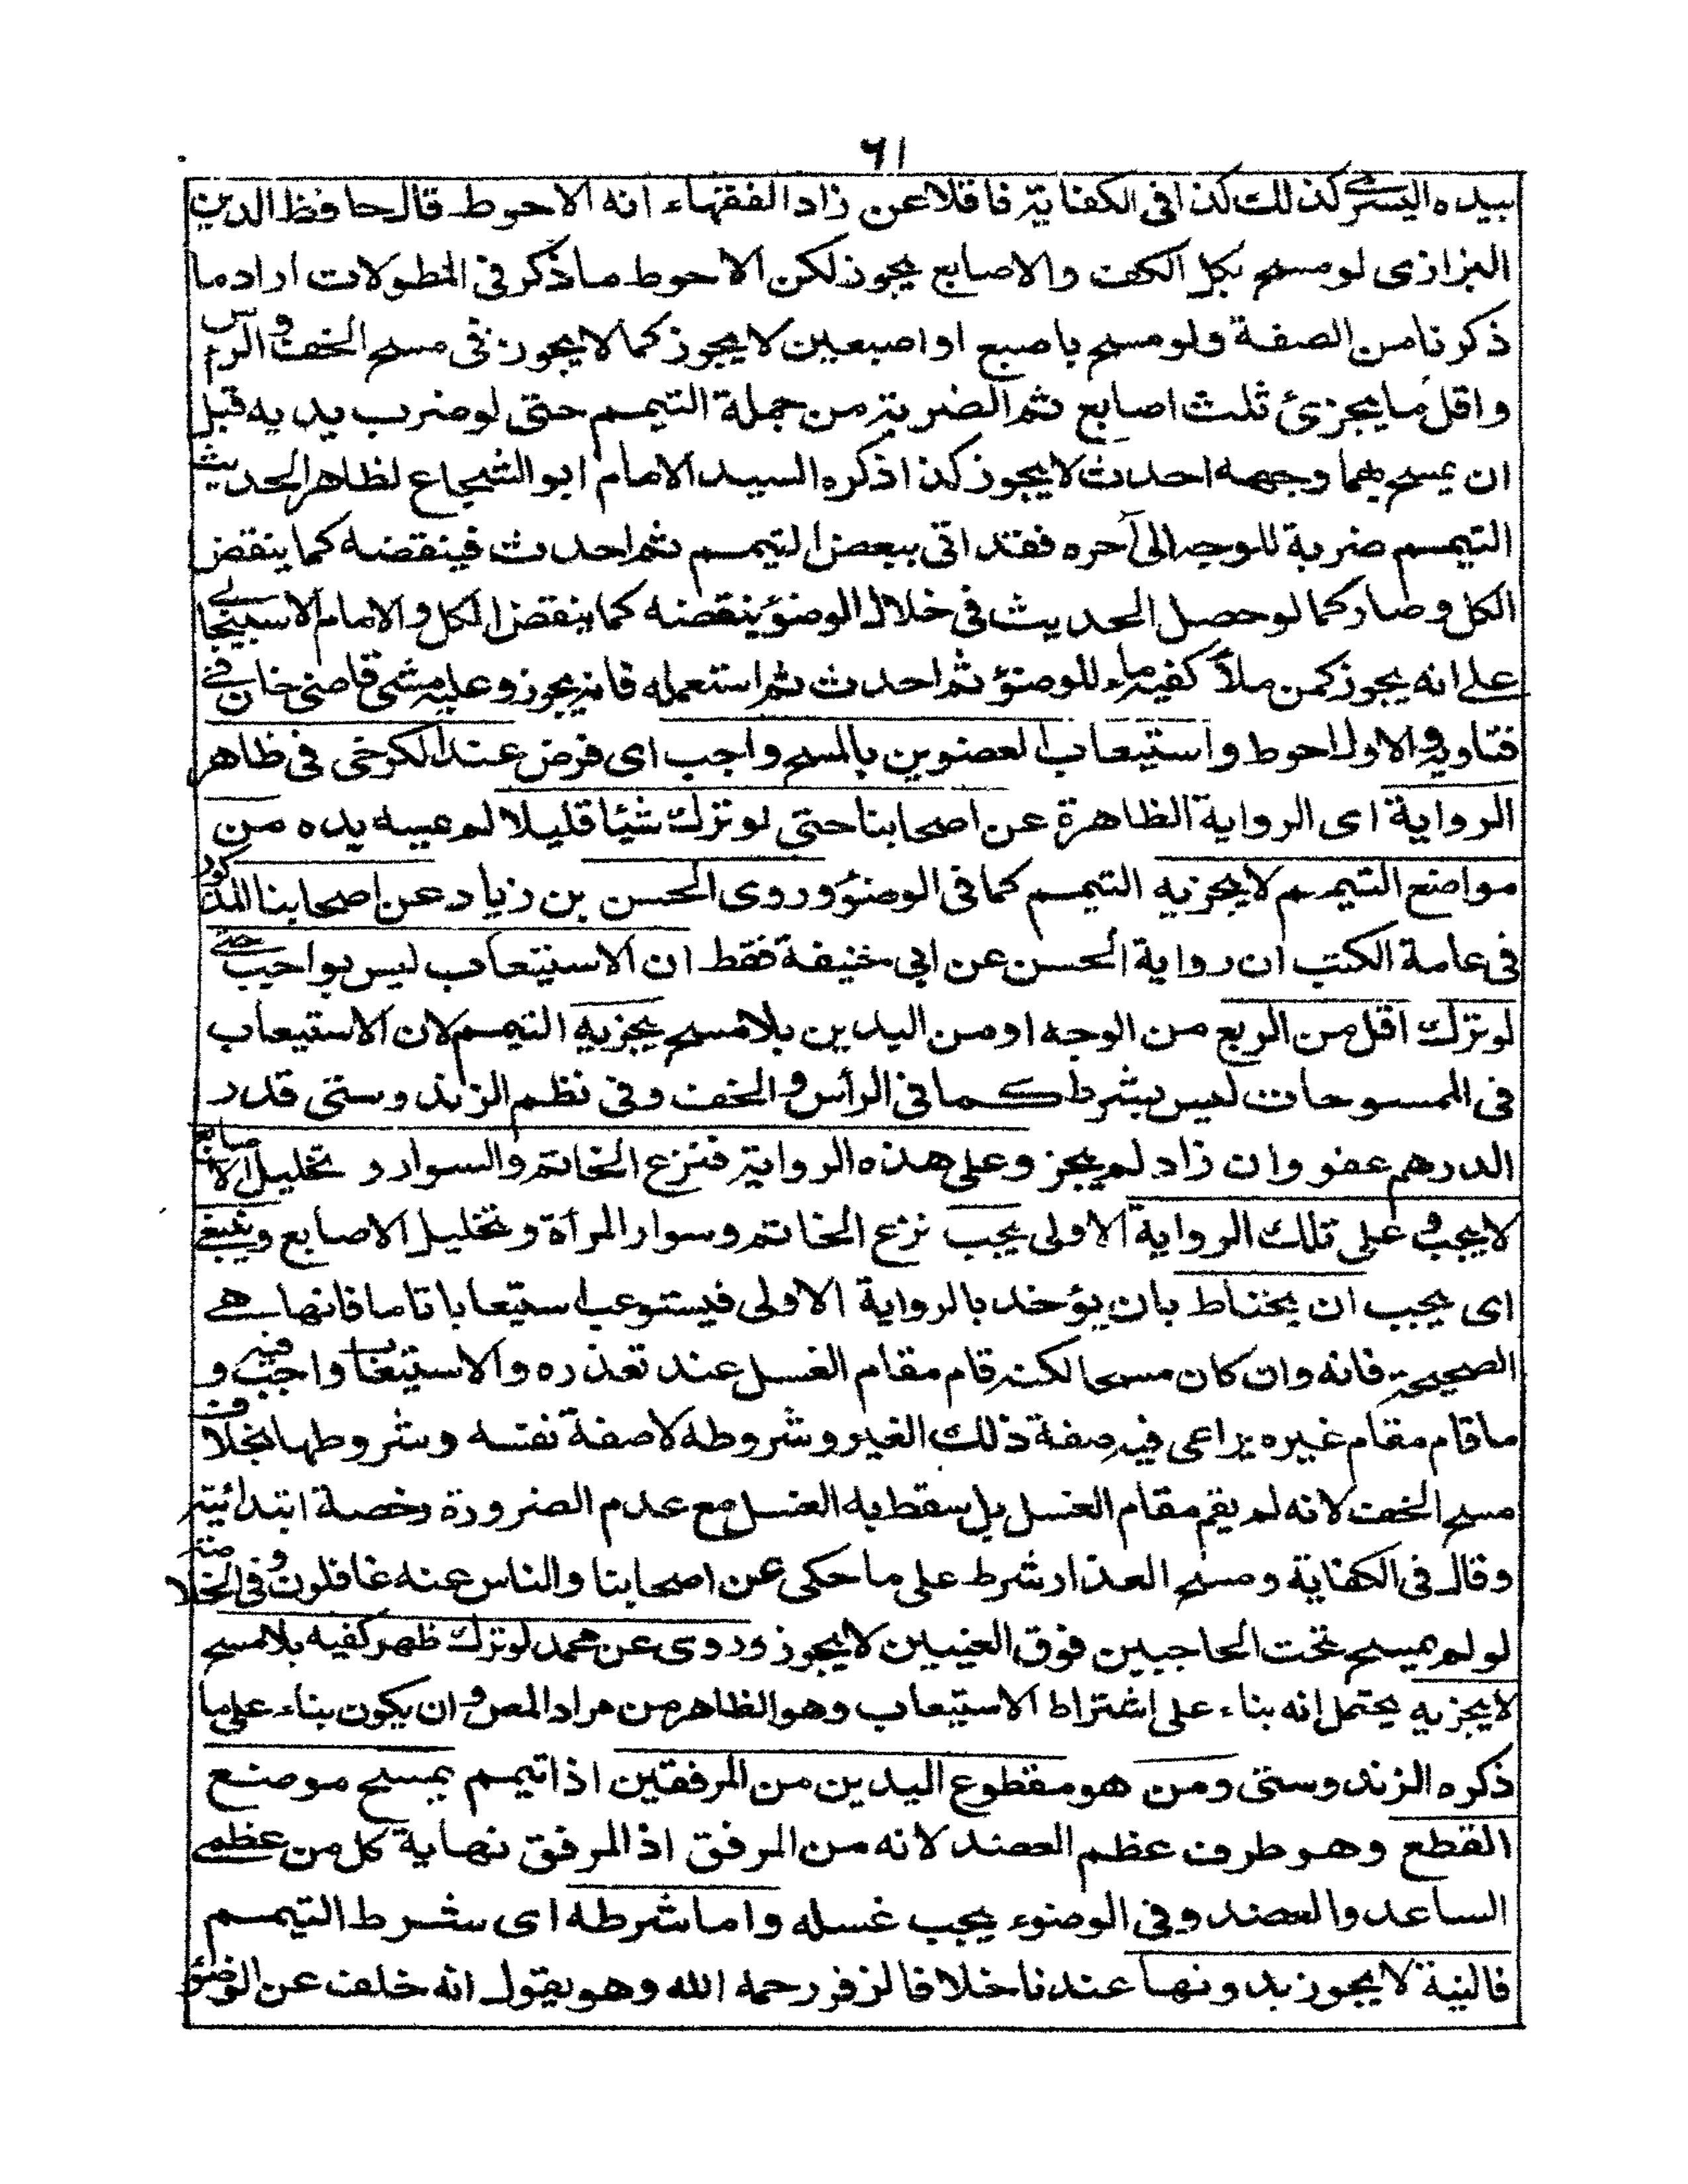 ٦١
بيده اليسرى كذلك كذا فى الكفاية ناقلا عن زاد الفقهاء انه الاحوط قال حافظ الدين
البزازى لو مسح بكل الكف والاصابع يجوز لكن الاحوط ما ذكر فى المطولات اراد ما
ذكرنا من الصفة ولو مسح باصبع او اصبعين لا يجوز كما لا يجوز فى مسح الخف والرأس
واقل ما يجزئ ثلث اصابع ثم الضربة من جملة التيمم حتى لو ضرب يديه قبل
ان يمسح بهما وجهه احدث لا يجوز كذا ذكره السيد الامام ابو الشجاع لظاهر الحديث
التيمم ضربة للوجه الى آخره فقد اتى ببعض التيمم ثم احدث فينقضه كما ينقض
الكل وصار كما لو حصل الحديث فى خلال الوضوء ينقضه كما ينقض الكل والامام الاسبيجابى
على انه يجوز كمن ملأ كفيه ماء للوضوء ثم احدث ثم استعمله فانه يجوز وعليه مشى قاضى خان فى
فتاويه والاول احوط واستيعاب العضوين بالمسح واجب اى فرض عند الكرخى فى ظاهر
الرواية اى الرواية الظاهرة عن اصحابنا حتى لو ترك شيئا قليلا لم يمسه يده من
مواضع التيمم لا يجزيه التيمم كما فى الوضوء وروى الحسن بن زياد عن اصحابنا المذكور
فى عامة الكتب ان رواية الحسن عن ابى حنيفة فقط ان الاستيعاب ليس بواجب حتى
لو ترك اقل من الربع من الوجه او من اليدين بلا مسح يجزيه التيمم لان الاستيعاب
فى الممسوحات ليس بشرط كما فى الرأس والخف وفى نظم الزندوستى قدر
الدرهم عفو وان زاد لم يجز وعلى هذه الرواية فنزع الخاتم والسوار و تخليل الاصابع
لا يجب و على تلك الرواية الاولى يجب نزع الخاتم وسوار المرأة وتخليل الاصابع وينبغى
اى يجب ان يحتاط بان يؤخذ بالرواية الاولى فيستوعب استيعابا تاما فانها هى
الصحيحة فانه وان كان مسحا لكنه قام مقام الغسل عند تعذره والاستيعاب واجب فيه و
ما قام مقام غيره يراعى فيه صفة ذلك الغير وشروطه لا صفة نفسه وشروطها بخلاف
مسح الخف لانه لم يقم مقام الغسل بل سقط به الغسل مع عدم الضرورة رخصة ابتدائية
وقال فى الكفاية ومسح العذار شرط على ما حكى عن اصحابنا والناس عنه غافلون وفى الخلاصة
لو لم يمسح تحت الحاجبين فوق العينين لا يجوز وروى عن محمد لو ترك ظهر كفيه بلا مسح
لا يجزيه يحتمل انه بناء على اشتراط الاستيعاب وهو الظاهر من مراد المص و ان يكون بناء على ما
ذكره الزندوستى ومن هو مقطوع اليدين من المرفقين اذا تيمم يمسح موضع
القطع وهو طرف عظم العضد لانه من المرفق اذ المرفق نهاية كل من عظمى
الساعد والعضد وفى الوضوء يجب غسله واما شرطه اى شرط التيمم
فالنية لا يجوز بدونها عندنا خلافا لزفر رحمه الله وهو يقول انه خلف عن الوضوء